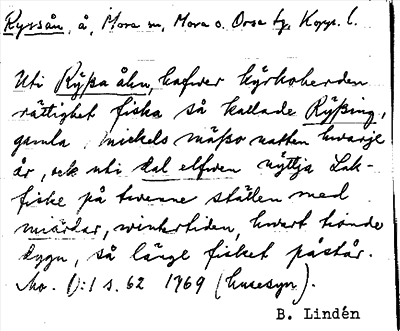 Ryssån, å, Mora sn, Mora o. Orsa tg, Kopp. l.
Uti Ryßa åhn, hafwer kyrkoherden
rättighet fiska så kallade Ryßing,
gamla Mickels mäßo natten hwarje
år, och uti Dal elfwen nyttja Lak-
fiske på twenne ställen med
miärdar, wintertiden, hwart tionde
dygn, så länge fisket påstår.
s. 62 1769 (husesyn).
B. Lindén